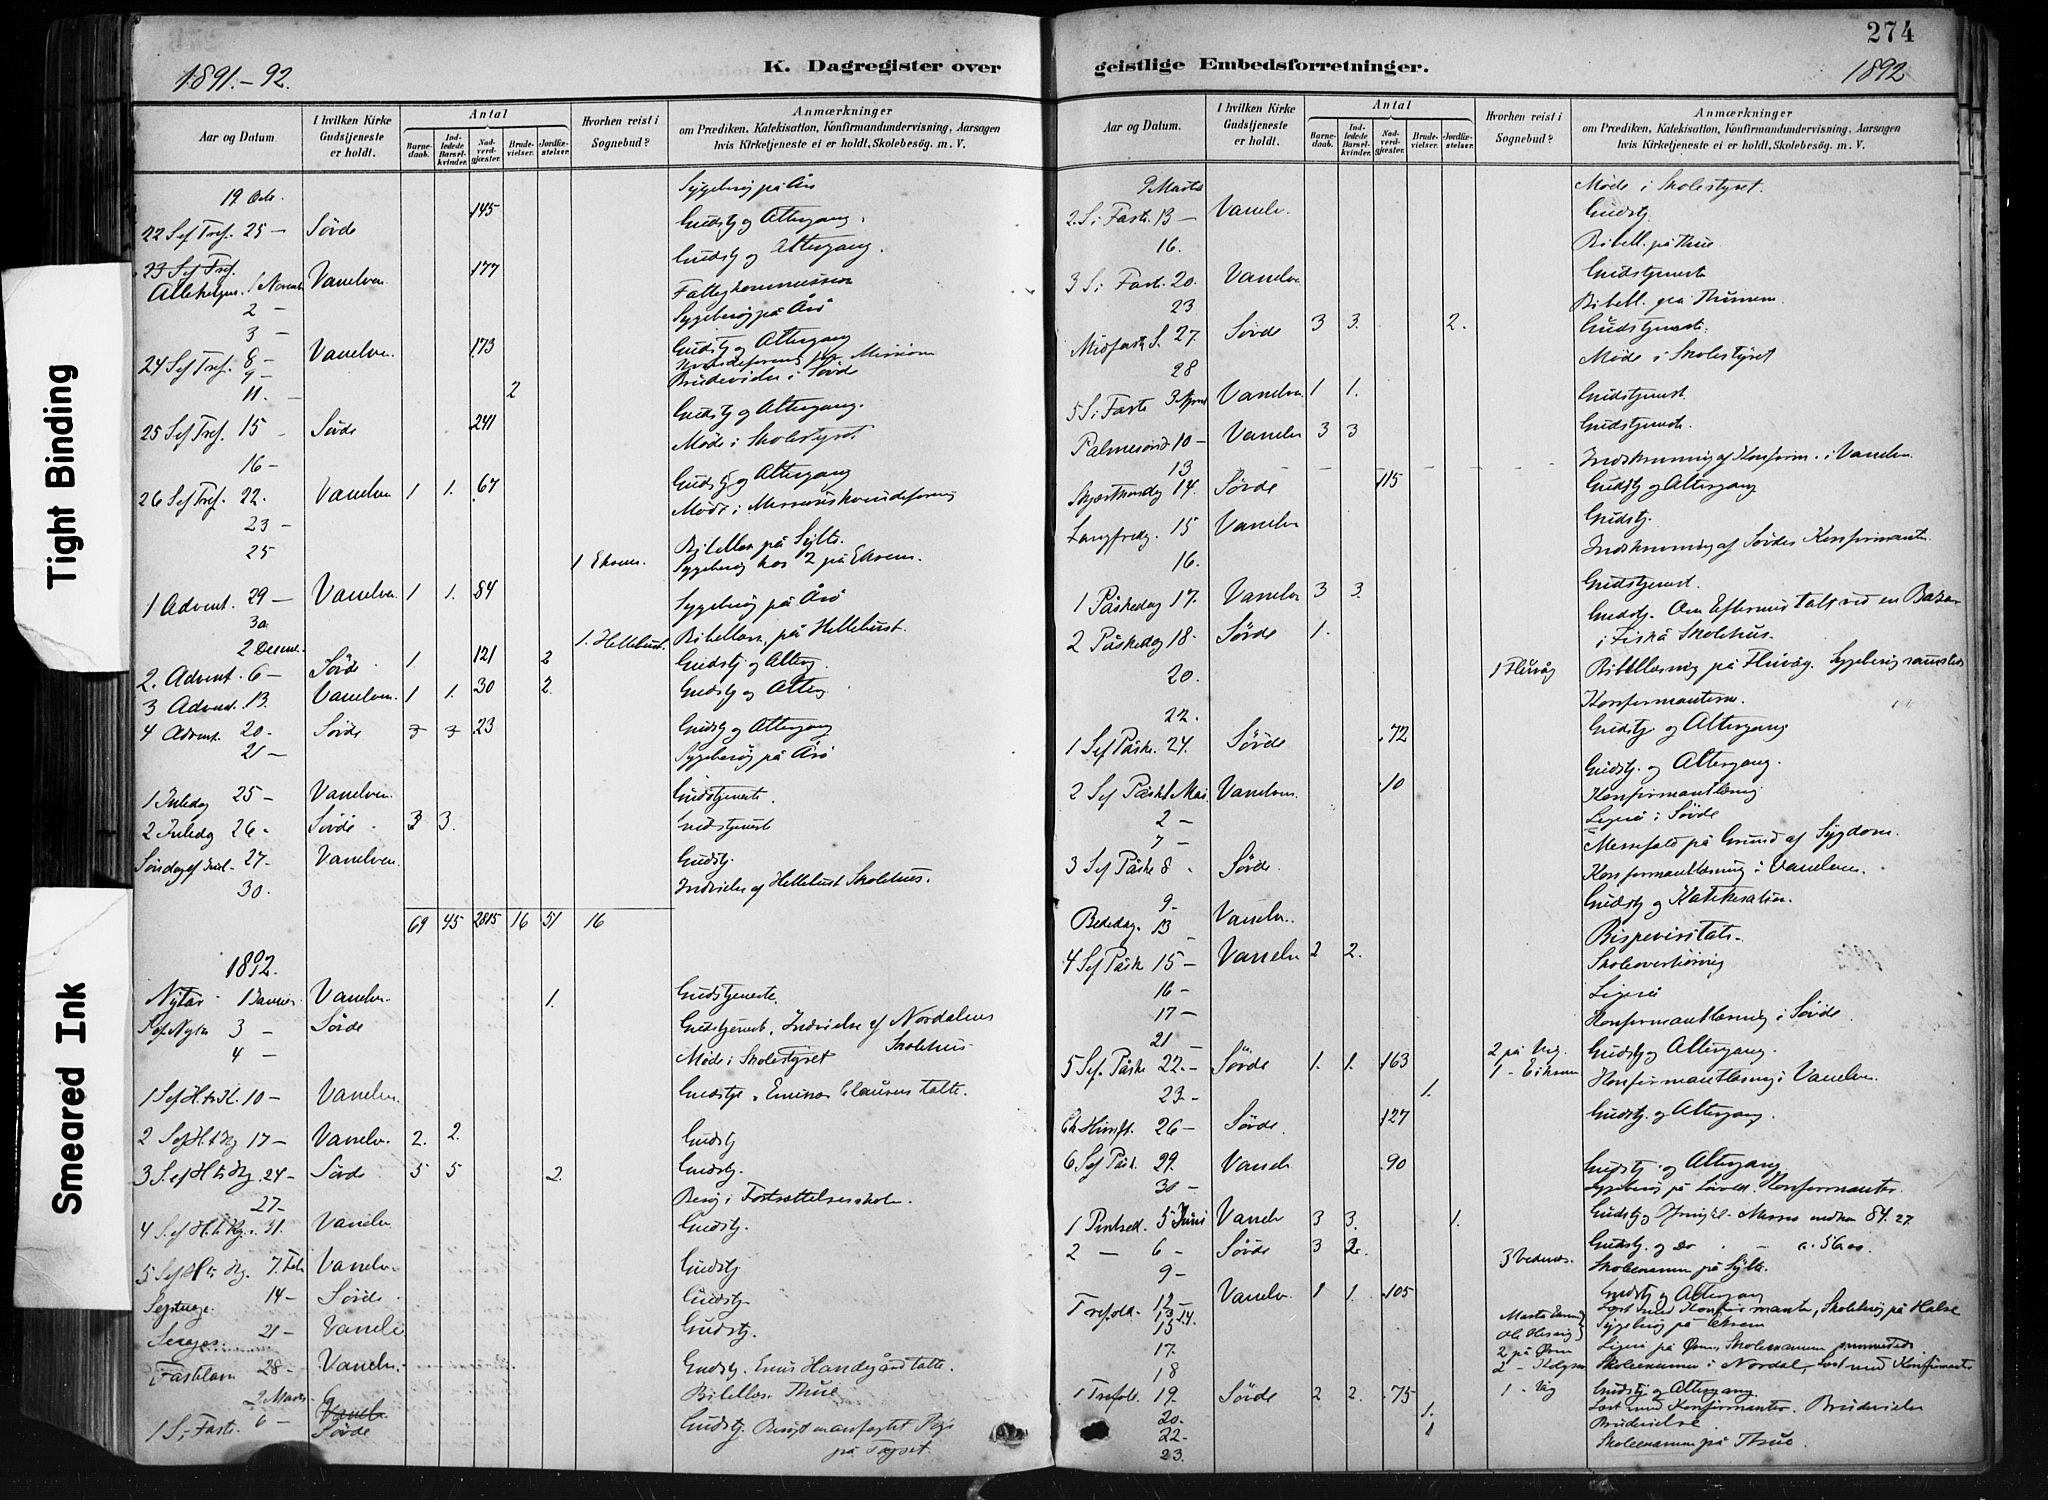 274
1891.-92.
K. Dagregister over geistlige Embedsforretninger.
1892
Aar og Datum. | I hvilken Kirke Gudstjeneste er holdt. | Antal | Barnedaab. | Indledede Barselkvinder. | Nadverdgjester. | Brudevielser. | Jordfæstelser. | Hvorhen reist i Sognebud? | Anmærkninger om Prædiken, Katekisation, Konfirmandundervisning, Aarsagen hvis Kirketjeneste ei er holdt, Skolebesøg. m. V.
19 Octr. Sygebesøg på Årö
22 S ef Tref. 25 — Sørde 145 Gudstj og Altergang.
23 S ef Tref.
Allehelgen 1 Novemb Vanelven 177 Gudstj og Altergang.
2 — Fattigkommission
3 — Sygebesøg på Årö
24 S ef Tref. 8 — Vanelven. 173 Gudstj og Altergang
9 —
11. 2 Brudevielse i Sørde
25 S ef Tref. 15 Sørde 241 Gudstj og Altergang.
16 — Møde i Skolestyret
26 S ef Tref. 22. Vanelven 1 1. 67 Gudstj og Altergang
23 — Møde i Missionskvindeforening
25 Bibellæs på Sylte.
1 Eksem. Sygebesøg hos 2 på Eksem.
1 Advent. 29 — Vanelven 1 1. 84
30 Sygebesøg på Årö
2 Decemb. 1. Hellebust. Bibellæsn. på Hellebust.
2. Advent. 6 — Sørde 1 121 2 Gudstj og Alterg.
3 Advent. 13. Vanelven. 1 1. 30 2. Gudstj og Alterg
4 Advent. 20. Sørde 7 7 23 Gudstj og Altergang
21 — Sygebesøg på Årö
1 Juledag 25 — Vanelven. Gudstjeneste.
2 Juledag 26 — Sørde 3 3. Gudstjenest
Søndag ef Jul. 27. Vanelven. Gudstj.
30. Indvielse af Hellebust Skolehus.
69 45 2815 16 51 16
1892.
Nytår 1 Januar Vanelv. 1. Gudstjeneste.
S ef Nytår 3 — Sørde Gudstjenest. Indvielse af Nordalens Skolehus
4 — Møde i Skolestyret
1 S ef H. tr. K. 10 — Vanelv. Gudstje. Clausens talte.
2 S ef H. t Kg 17 — Vanelv. 2. 2. Gudstj
3 S. ef H. tr. Kg. 24 — Sørde 5 5 2. Gudstj.
27 — Besøg i Fortsættelsesskolen.
4 S. ef H. t. Kg. 31. Vanelv Gudstj.
5 S ef H tr Kg. 7. Feb Vanelv. Gudstj
Septuag. 14 — Sørde. Gudstj.
Sexages. 21 — Vanelv Gudstj.
Fastelavn 28 — Vanelv. Gudstj. Handegård talte.
2 Marts Bibellæs. Thue
1 S. i Fast. 6 — Vanelv Sørde Gudstj. på Tøyset.
Aar og Datum. | I hvilken Kirke Gudstjeneste er holdt. | Antal | Barnedaab. | Indledede Barselkvinder. | Nadverdgjester. | Brudevielser. | Jordfæstelser. | Hvorhen reist i Sognebud? | Anmærkninger om Prædiken, Katekisation, Konfirmandundervisning, Aarsagen hvis Kirketjeneste ei er holdt, Skolebesøg. m. V.
9 Marts Møde i Skolestyret.
2 S. i Fast. 13 — Vanelv. Gudstj.
16. Bibell. på Thue
3 S. i Fast. 20. Vanelv Gudstjeneste
23 Bibell. på Thunem.
Midfaste S. 27. Sørde 3 3. 2. Gudstjeneste.
28 Møde i Skolestyret
5 S. i Faste 3 April Vanelv 1 1. Gudstjenest
Palmesønd 10 — Vanelv 3 3 Gudstjenest.
13 Indskrivning af Konfirm. i Vanelv.
Skjærtorsdag 14. Sørde 115 Gudstj og Altergang
Langfredg. 15 Vanelv Gudstj.
16. Indskrivning af Sørdes Konfirmanter
1 Påskedag 17. Vanelv 3 3. Gudstjenest.
2 Påskedag 18. Sørde 1. Gudstj. Om Eftermid talt ved en Bazar i Fiskå Skolehus.
20. 1 Fluvåg Bibellæsning på Fluvåg. Sygebesøg sammesteds
22. Konfirmanterne.
1 S ef Påske 24. Sørde 72 Gudstj. og Altergang
2 S ef Påske 1 Mai Vanelven. 10 Gudstj. og Altergang.
2 — Konfirmantlæsning
7 — Ligeså i Sørde
3 S ef Påske 8 Sørde. Messefald på Grund af Sygdom.
9 — Konfirmantlæsning i Vanelven.
Bededag. 13 Vanelv. Gudstj og Katekisation.
4 S ef Påsk 15 — Vanelv 2 2. Bispevisitats.
16 — Skoleoverhøring
17 — Ligeså
21 — Konfirmantlæsning i Sørde.
5 S ef. Påske 22. — Sørde 1. 1. 163 2 på Vig. Gudstj og Altergang.
23. — 1. 1 — Eiksem Konfirmantlæsning i Vanelven.
Ch Himft. 26 — Sørde. 127 Gudstj. og Altergang.
6 S ef Påsk. 29. Vanelv 90 Gudstj. og Altergang
30 — Konfirmanter.
1 Pintsed. 5 Juni Vanelv 3 3. 1. Gudstj og 84. 27.
2 — 6 — Sørde 3 2. Gudstj. og Do — 56.00
9 — 3 Vednes. Skoleexamen på Sylte.
Trefold. 12 Vanelv 1 1. 105 Gudstj og Altergang
13 14. Læst med Konfirmanter, Skolebesøg på Halse
15 Sygebesøg på Eksem
17. 2 på Ørsn Skoleexamen
18 2 — Skoleexamen i Nordal, Læst med Konfirmanter
1 Trefold. 19. Sørde 2 2. 75 1. Vig Gudstj og Altergang.
20. 1. Læst med Konfirmanter. Brudevielse
22. 1 Brudevielse
23. Skoleexamen på Thue.
Tight Binding
Smeared Ink